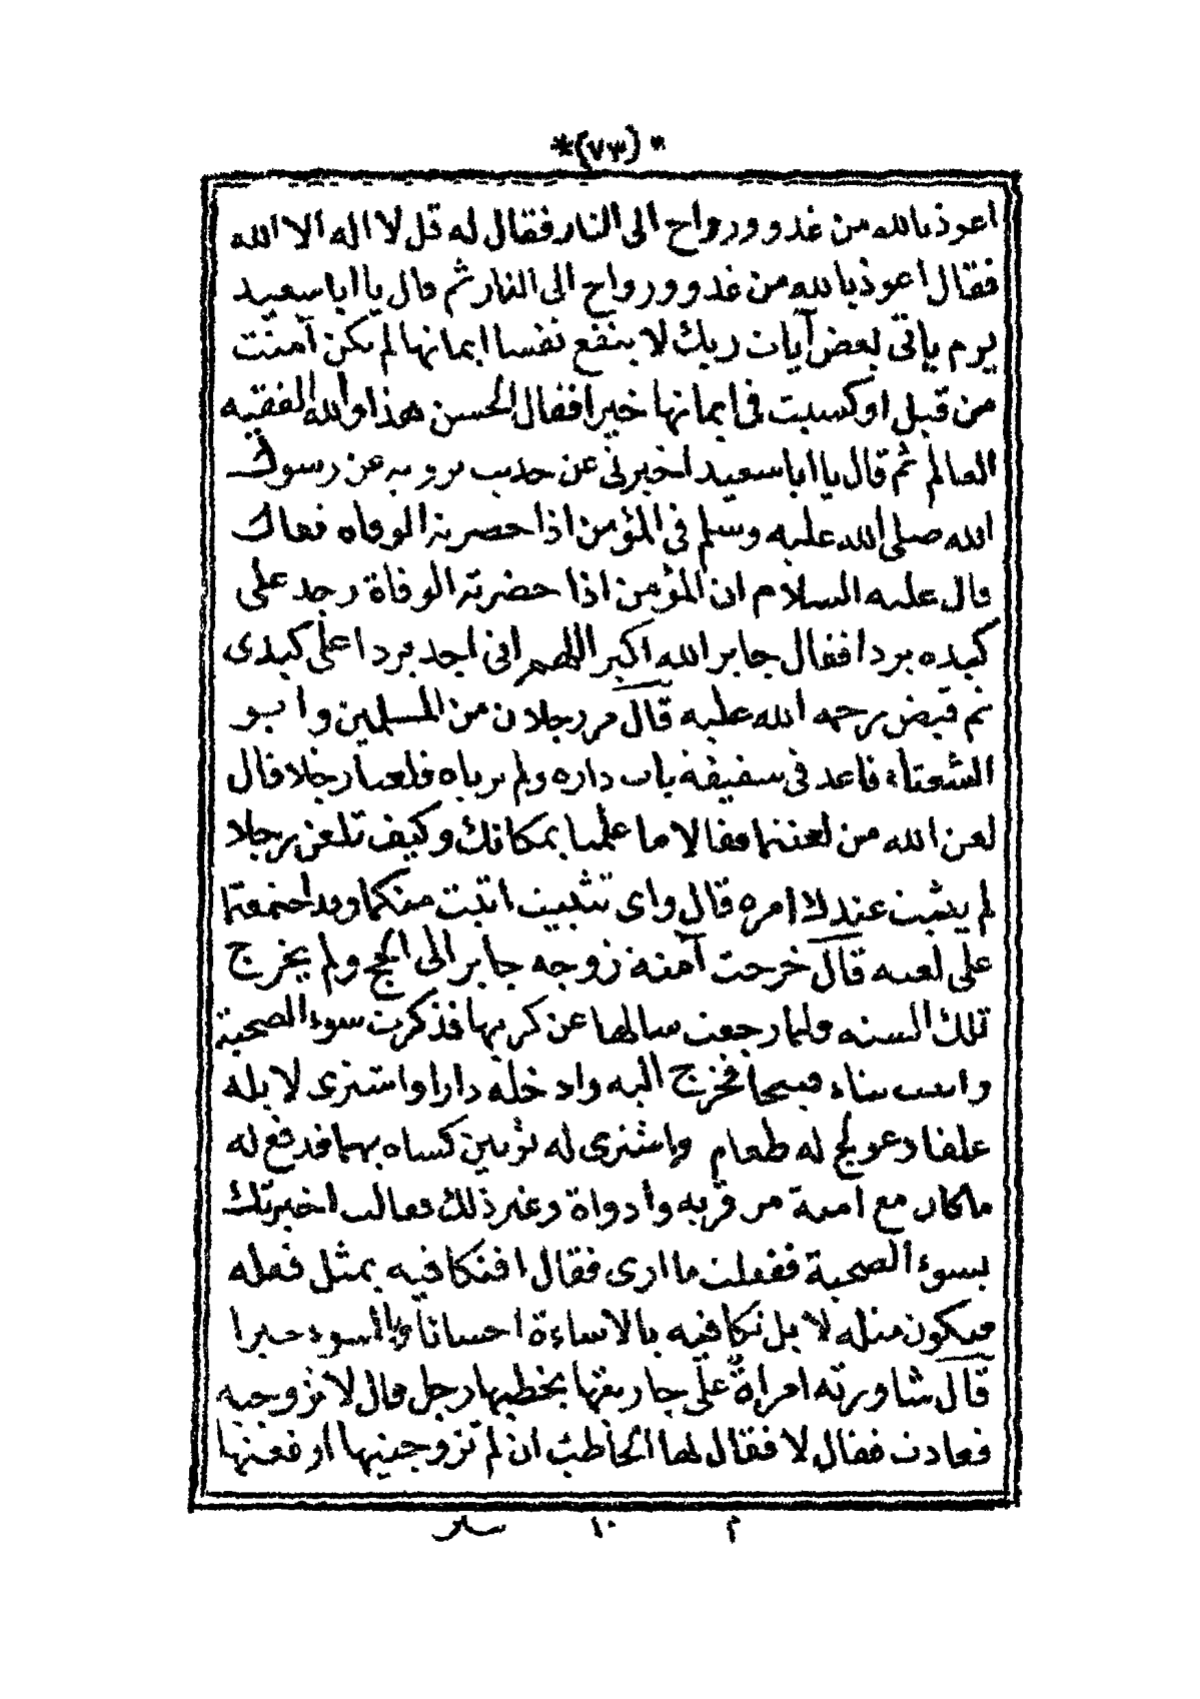 *(٧٣)*
اعوذ بالله من غدو ورواح الى النار فقال له قل لا اله الا الله
فقال اعوذ بالله من غدو ورواح الى النار ثم قال يا ابا سعيد
يوم يأتى بعض آيات ربك لا ينفع نفسا ايمانها لم تكن آمنت
من قبل او كسبت فى ايمانها خيرا فقال الحسن هذا والله الفقيه
العالم ثم قال يا ابا سعيد اخبرنى عن حديث ترويه عن رسول
الله صلى الله عليه وسلم فى المؤمن اذا حضرته الوفاه فقال
قال عليه السلام ان المؤمن اذا حضرته الوفاة وجد على
كبده بردا فقال جابر الله اكبر اللهم انى اجد بردا على كبدى
ثم قبض رحمه الله عليه قال مر رجلان من المسلمين وابو
الشعثاء قاعد فى سقيفة باب داره ولم يرياه فلعنا رجلا قال
لعن الله من لعنتما فقالا ما علمنا بمكانك وكيف تلعن رجلا
لم يثبت عندك امره قال واى تثبيت اثبت منكما وقد اجتمعتما
على لعنه قال خرجت آمنه زوجه جابر الى الحج ولم يخرج
تلك السنه ولما رجعت سالها عن كريها فذكرت سوء الصحبة
فخرج اليه وادخله دارا واشترى لابله
علفا وعولج له طعام واشترى له ثوبين كساه بهما فدفع له
ما كان مع آمنة من قربه وادواة وغير ذلك فقالت اخبرتك
بسوء الصحبة ففعلت ما ارى فقال افنكافيه بمثل فعله
فيكون مثله لا بل نكافيه بالاساءة احسانا وبالسوء خيرا
قال شاورته امراة على جاريتها يخطبها رجل قال لا تزوجيه
فعادت فقال لا فقال لها الخاطب ان لم تزوجنيها اوقعتها
م ١٠ سير